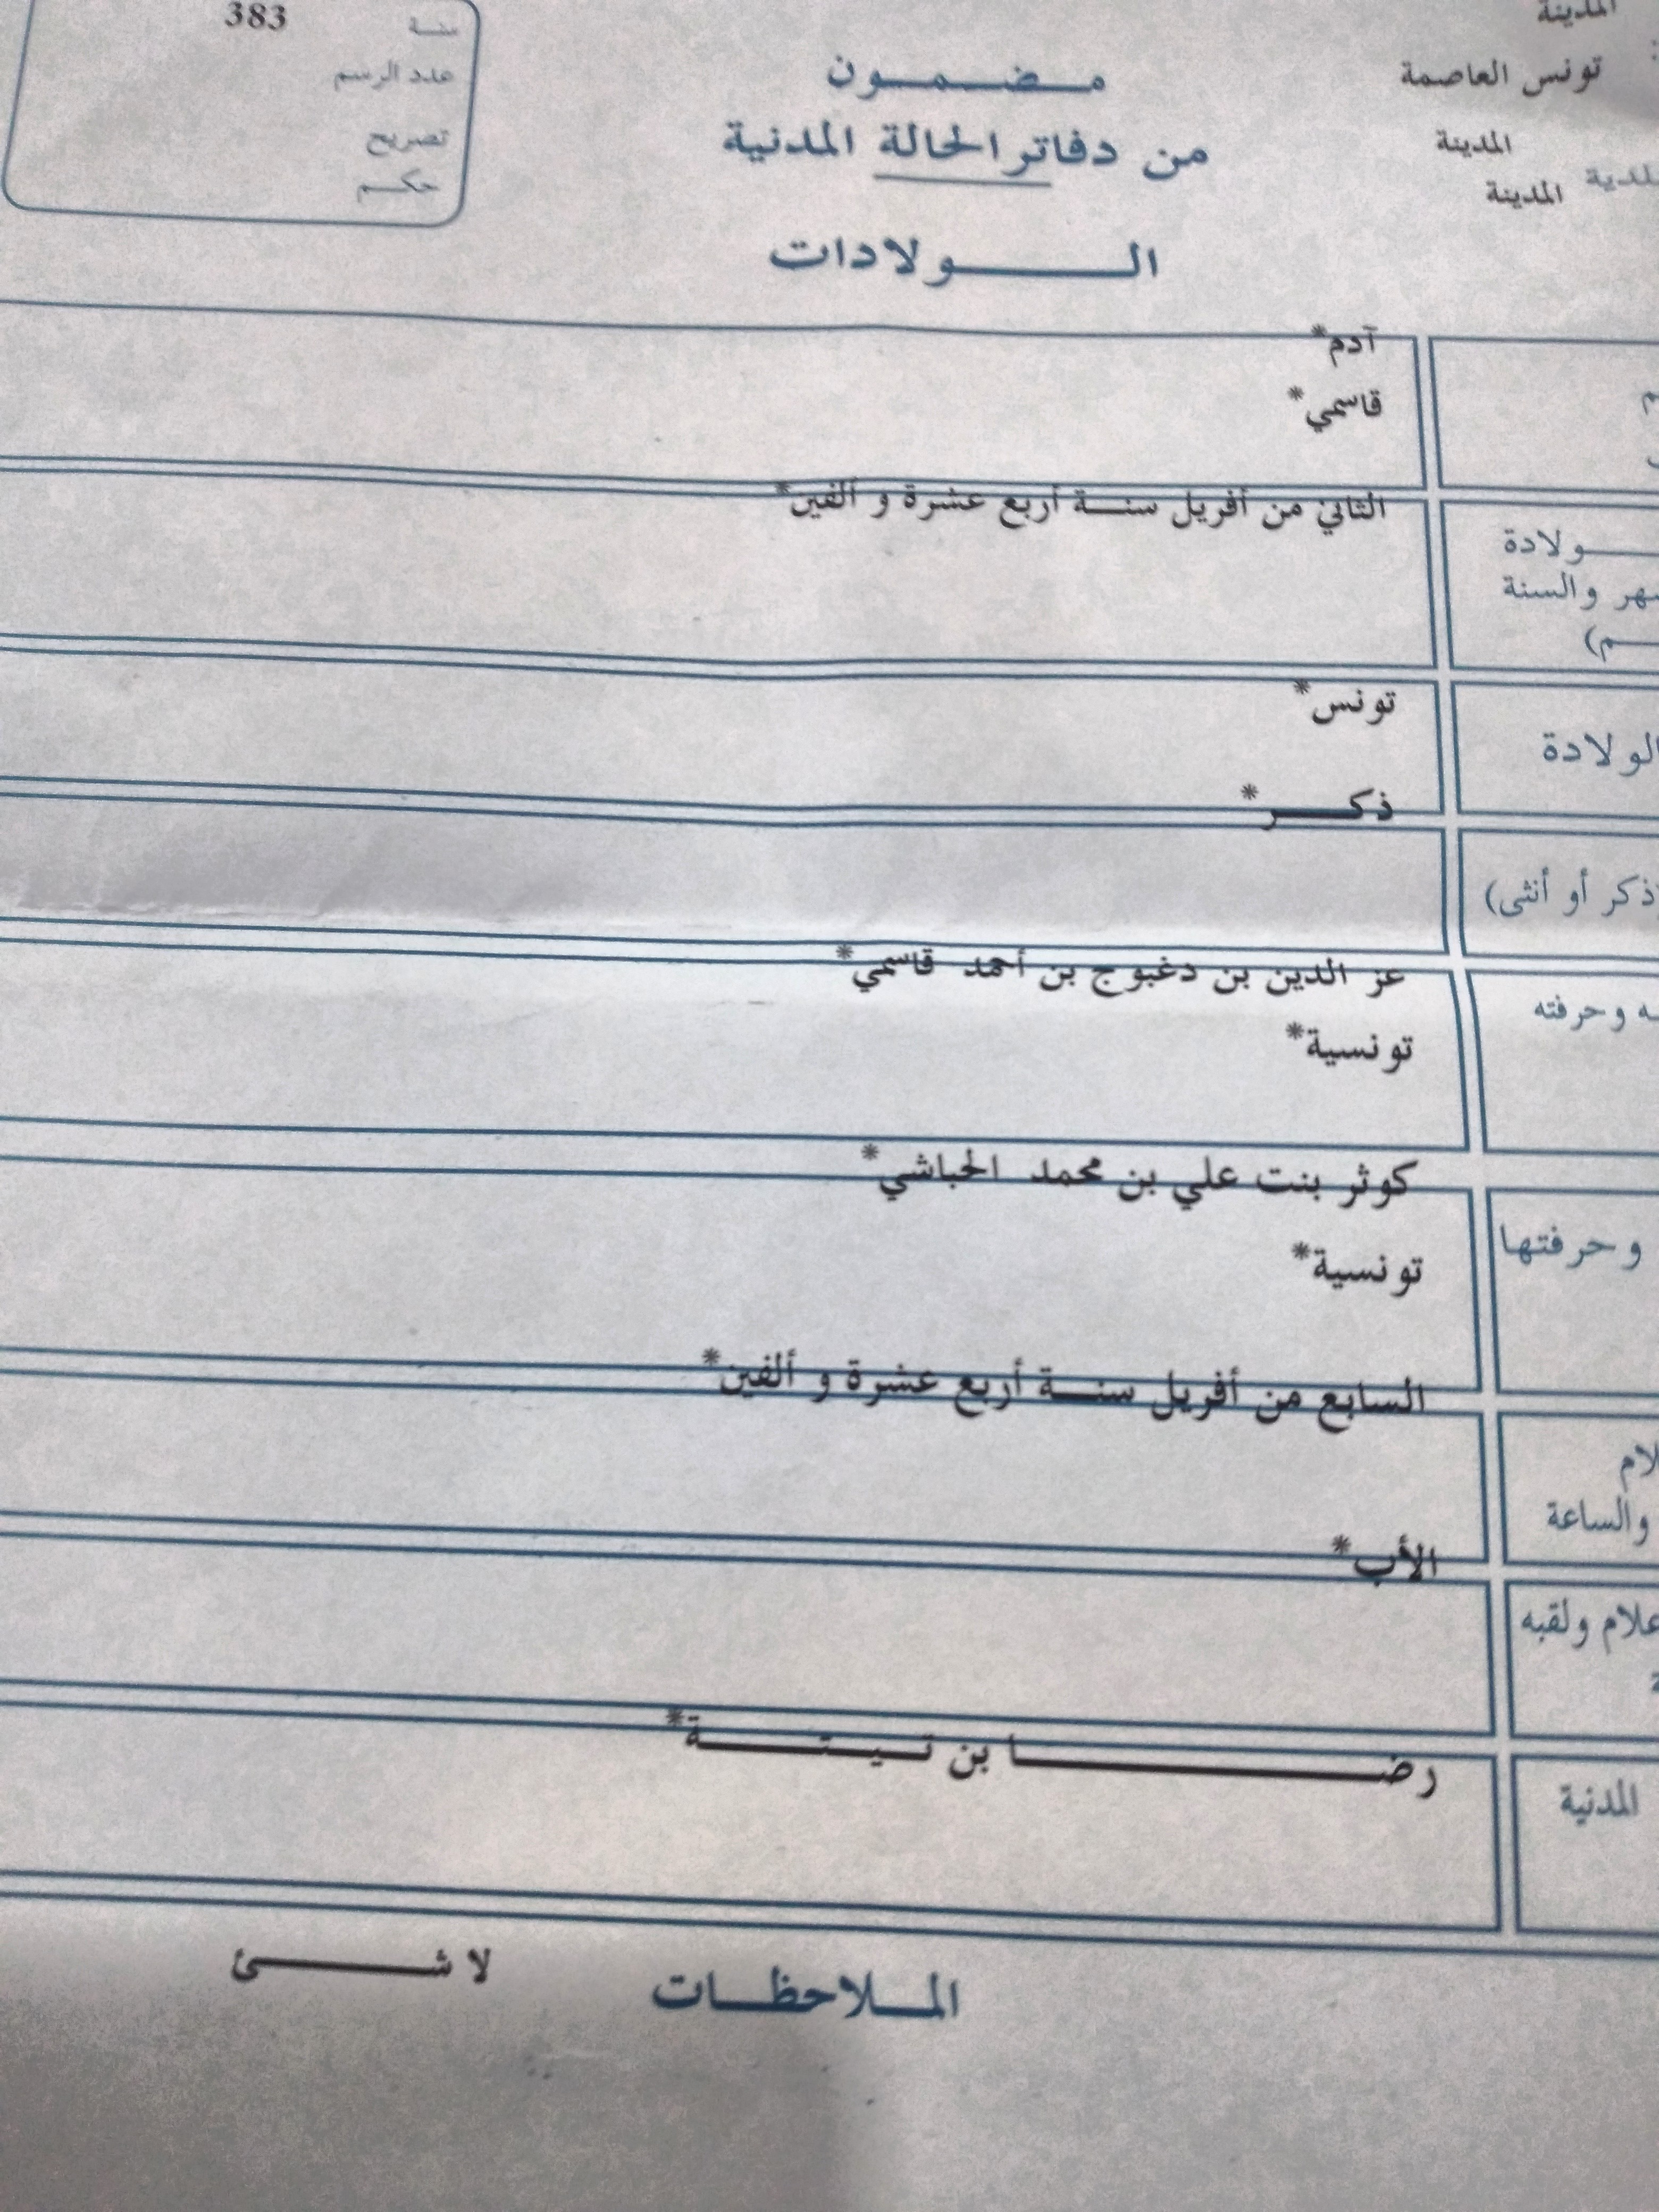 المدينة
تونس العاصمة
المدينة
المدينة
383
سنة
عدد الرسم
تصريح
حكم
مضمون
من دفاتر الحالة المدنية
الولادات
آدم*
قاسمي*
الثاني من أفريل سنة أربع عشرة و ألفين*
ولادة
والسنة
تونس*
الولادة
ذكر*
ذكر أو أنثى)
عز الدين بن دغبوج بن أحمد قاسمي*
وحرفته
تونسية*
كوثر بنت علي بن محمد الحباشي*
وحرفتها
تونسية*
السابع من أفريل سنة أربع عشرة و ألفين*
والساعة
الأب*
ولقبه
رضا بن تيتة*
المدنية
الملاحظات لا شئ